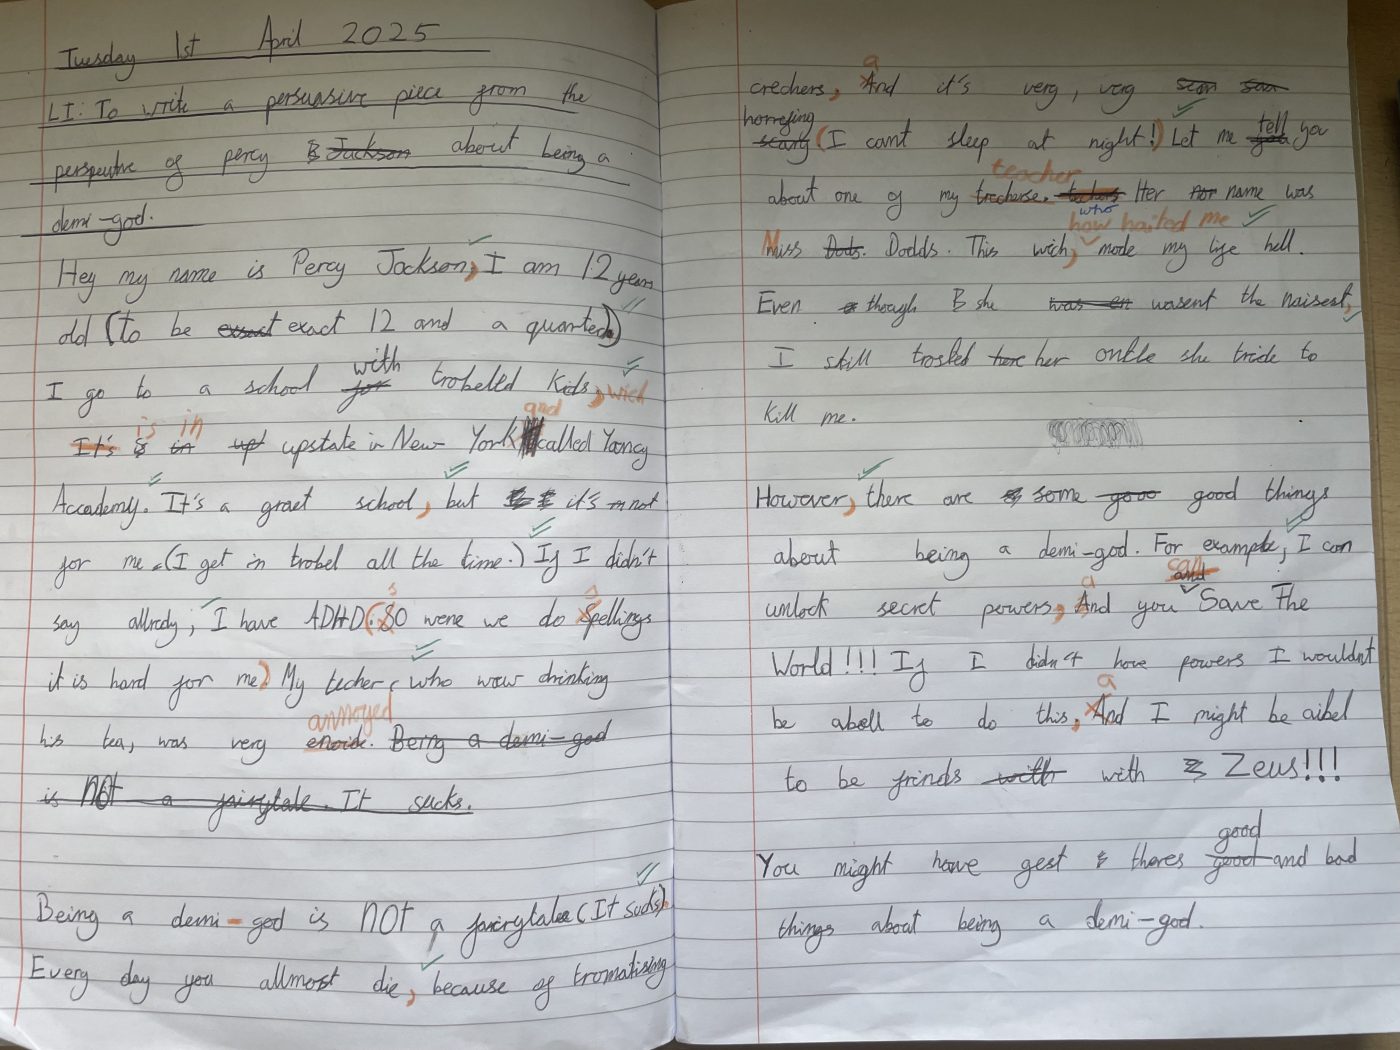 Tuesday 1st April 2025
LI: To write a persuasive piece from the
perspective of percy B Jackson about being a
demi-god.
Hey my name is Percy Jackson, I am 12 years
old (to be exact 12 and a quarter)
with
I go to a school for trobelld kids, wich
is in and
It's is in up upstate in New-York called Yancy
Accademy. It's a graet school, but it's not
for me. (I get in trobel all the time.) If I didn't
s s
say allredy, I have ADHD (. SO wene we do Spellings
it is hard for me) My techer, who wow drinking
annoyed
his tea, was very enoide. Being a demi-god
is NOT a fairytale. It sucks.
Being a demi-god is NOT a fairytale (It sucks).
Every day you allmost die, because of tromatising
a
crechers, And it's very, very
horrefing tell
scary (I cant sleep at night!) Let me you
teacher
about one of my trecherse. techers Her name was
who how haited me
Miss Dods. Dodds. This wich, mode my life hell.
Even though B she was en wasent the naisest,
I still trosted her ontle she tride to
kill me.
However, there are some good things
about being a demi-god. For example, I can
a can
unlock secret powers, And you and Save The
World!!! If I didn't have powers I wouldnt
a
be abell to do this, And I might be aibel
to be frinds with with Zeus!!!
good
You might have gest theres good and bad
things about being a demi-god.